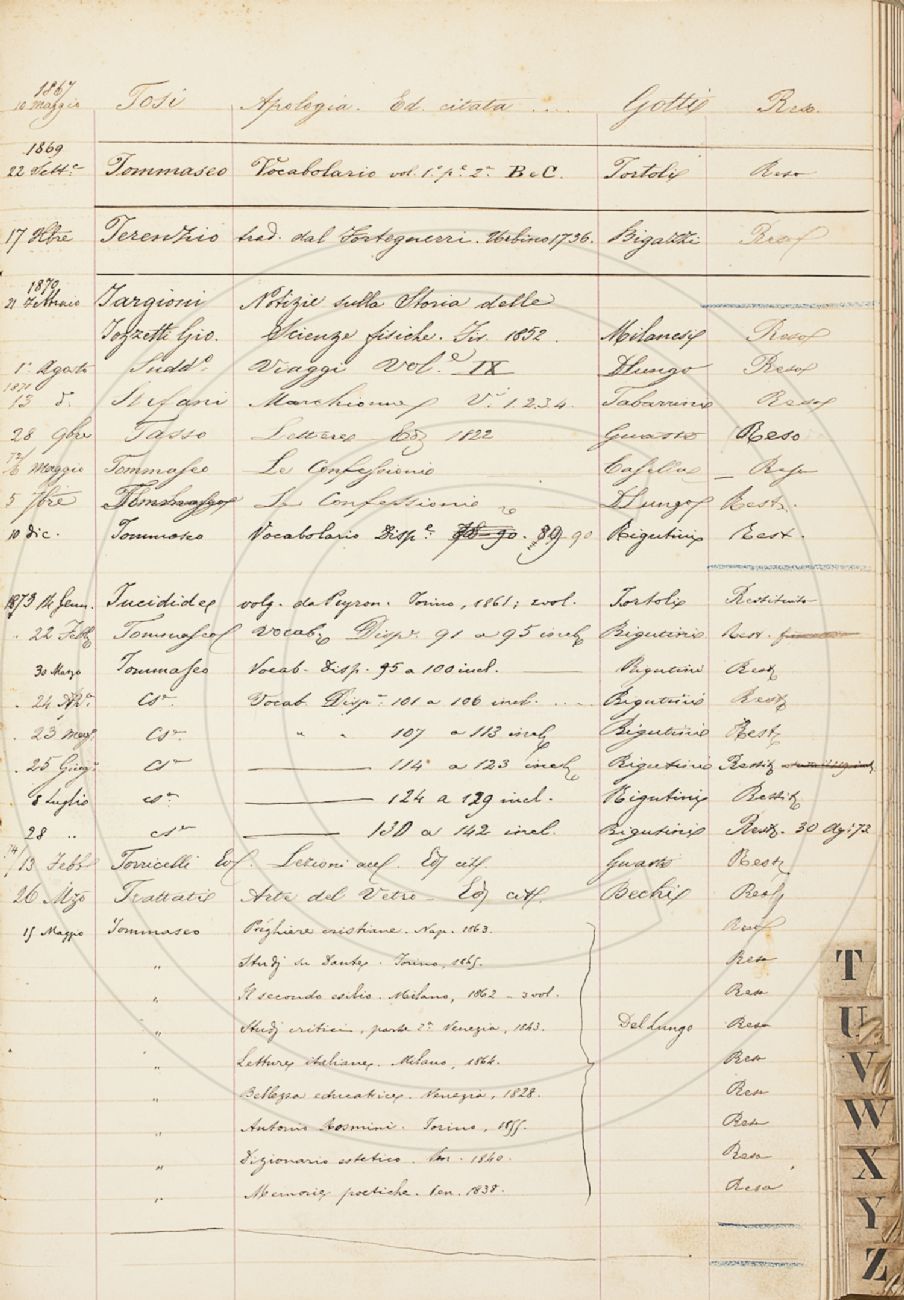 1867
10 Maggio Tosi Apologia. Ed. citata .... Gotti Reso.
1869
22 Sett.e Tommaseo Vocabolario vol. 1.° p.e 2.a B e C. Tortoli Reso
17 Xbre Terenzio trad. dal Forteguerri. Urbino 1736. Bigazzi Reso
1870
21 Febbraio Targioni Notizie sulla Storia delle
Tozzetti Gio. Scienze fisiche. Fir. 1852. Milanesi Reso
1.° Agosto Sudd.o Viaggi Vol.e IX DLungo Reso
1871
13 d.° Stefani Marchionne V.i 1. 2. 3. 4. Tabarrini Reso
28 9bre Tasso Lettere Ed 1822 Guasti Reso
72/6 Maggio Tommaseo Le Confessioni Casella Reso
5 7bre Tommaseo Le Confessioni DLungo Rest.
10 dic. Tommaseo Vocabolario Disp.e 89 90 Rigutini Rest.
1873 14 Genn. Tucidide volg. da Peyron. Torino, 1861; 2 vol. Tortoli Restituito
22 Febb Tommaseo Vocab. Disp. 91 a 95 incl Rigutini Rest.
30 Marzo Tommaseo Vocab. Disp. 95 a 100 incl. Rigutini Rest
24 Ap.e Cs.a Vocab. Disp. 101 a 106 incl. .... Rigutini Rest
23 Mag. Cs.a " " 107 a 113 incl Rigutini Rest
25 Giug.o Cs.a 114 a 123 incl Rigutini Restit
8 Luglio cs.a 124 a 129 incl. Rigutini Restit
28 " cs.a 130 a 142 incl. Rigutini Rest. 30 Ag: 72
74/13 Febb Torricelli Lezioni acc Ed cit. Guasti Rest
26 Mzo Trattati Arte del Vetro - Ed cit. Bechi Rest
15 Maggio Tommaseo Preghiere cristiane. Nap. 1863. Reso
" Studj su Dante. Torino, 1865. Reso
" Il secondo esilio. Milano, 1862 - 3 vol. Reso
" Studj critici, parte 2.a Venezia, 1843. Del Lungo Reso
" Letture italiane. Milano, 1864. Reso
" Bellezza educatrice. Venezia, 1828. Reso
" Antonio Rosmini. Torino, 1855. Reso
" Dizionario estetico. Ven. 1840. Reso
" Memorie poetiche. Ven. 1838. Reso
T
U
V
W
X
Y
Z